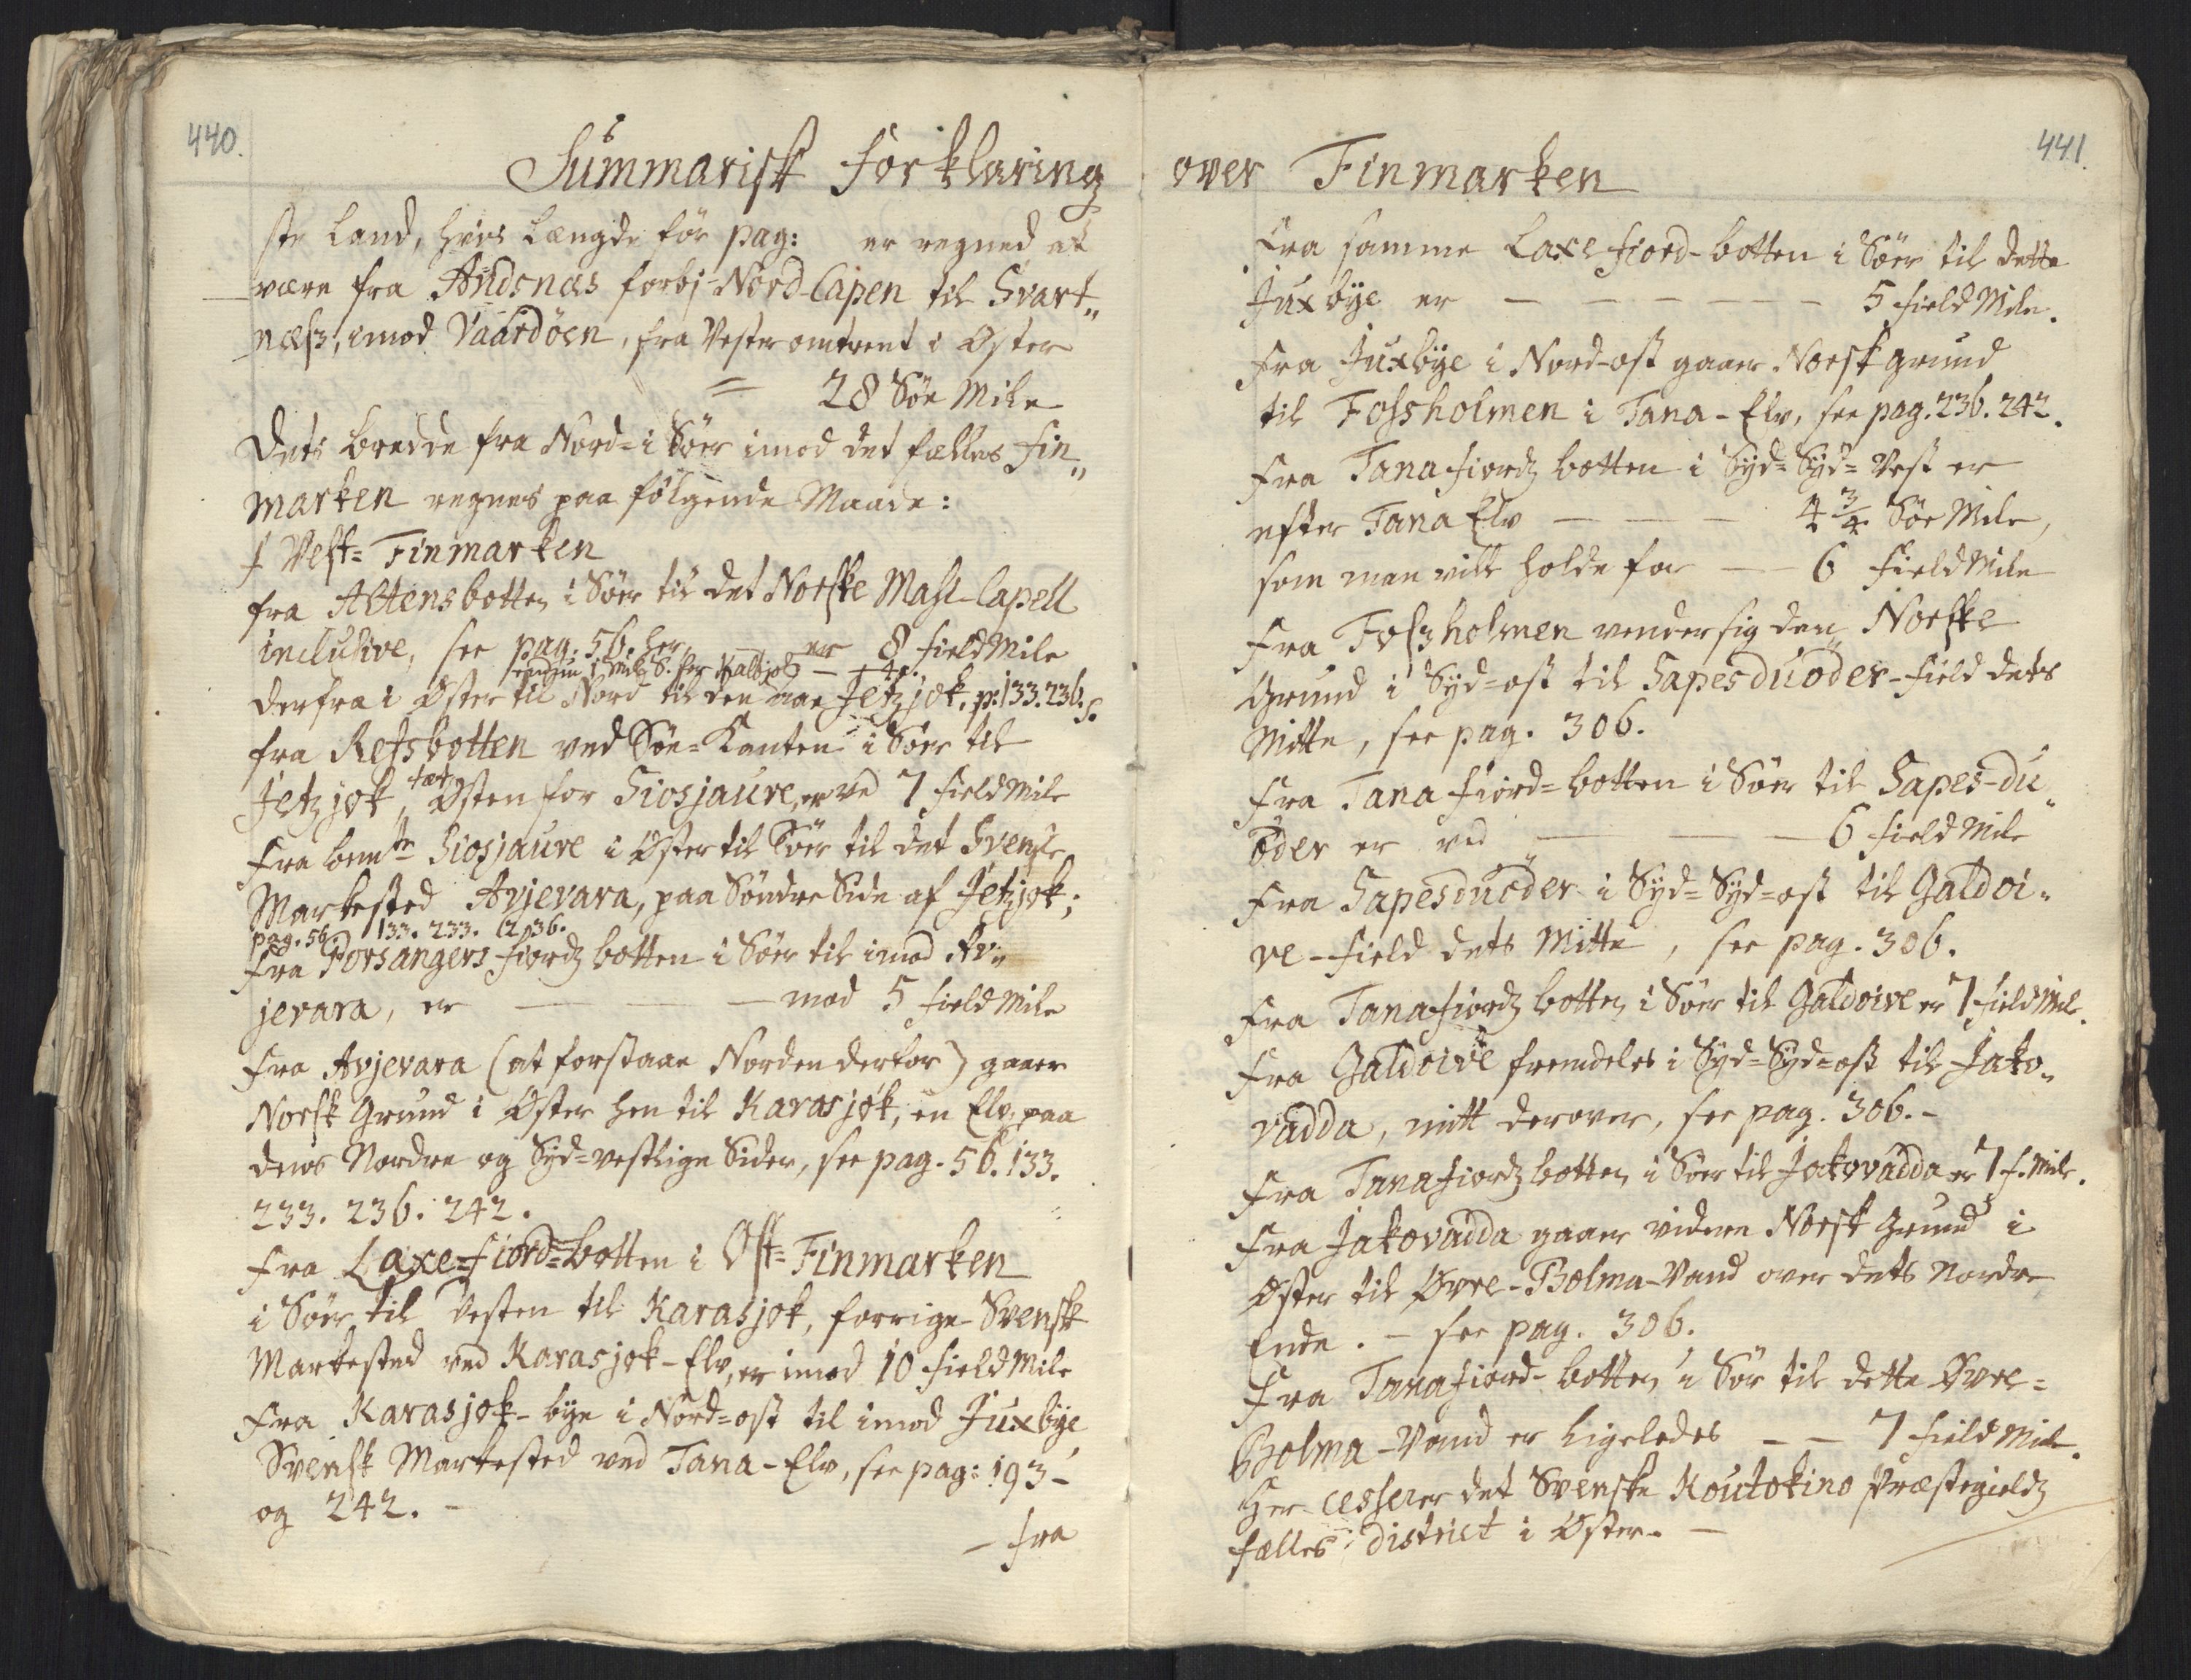 440.
Summarisk Forklaring
ste Land, hvis Længde før pag: er regned at
være fra Andsnæs forbj Nord-Capen til Svart„
næss, imod Vaardöen, fra Vester omtrent i Øster
= 28 Søe Mile
Dets bredde fra Nord- i Söer imod det fælles Fin„
marken regnes paa følgende Maade:
I Vest-Finmarken
fra Altensbotten i Söer til det Norske Masi-Capell
inclusive, see pag. 56. her er 8 field Mile
derfra i Øster til Nord til den Aae Jetzjok, p. 133. 236.
fra Refsbotten ved Söe-Kanten i Söer til
Jetzjok, tæt Østen for Siosjaure, er ved 7 field Mile
Fra bemte Siosjaure i Øster til Söer til det Svenske
Markested Avjevara, paa Søndre Side af Jetzjok;
pag. 56. 133. 233. 236.
Fra Porsangers fiordz botten i Söer til imod Av„
jevara, er — — — mod 5 field Mile
Fra Avjevara (at forstaae Norden derfor) gaaer
Norsk Grund i Øster hen til Karasjok, en Elv, paa
dens Nordre og Syd-vestlige Sider, see pag. 56. 133.
233. 236. 242.
Fra Laxe-fiord-botten i Øst-Finmarken
i Söer til Vesten til Karasjok, forrige Svensk
Markested ved Karasjok-Elv, er imod 10 field Mile
Fra Karasjok-bye i Nord-ost til imod Juxbye
Svensk Markested ved Tana-Elv, see pag: 193
og 242. –
– fra
441.
over Finmarken
Fra samme Laxefiord-botten i Söer til dette
Juxbye er — — — — — — 5 field Mile.
Fra Juxbye i Nord-ost gaaer Norsk grund
til Fossholmen i Tana-Elv, see pag. 236. 242.
Fra Tanafiordz botten i Syd-Syd-Vest er
efter Tana Elv — — — 4 3/4 Söe Mile,
som man vill holde for — — 6 field Mile
Fra Fossholmen vender sig den Norske
Grund i Syd-ost til Sapesduöder-field dets
Mitte, see pag. 306.
Fra Tana fiord-botten i Söer til Sapes-du„
öder er ved — — — 6 field Mile
Fra Sapesduöder i Syd-Syd-ost til Galdoi„
ve-field dets Mitte, see pag. 306.
Fra Tanafiordz botten i Söer til Galdoive er 7 field Mile.
Fra Galdoive fremdeles i Syd-Syd-ost til Jako„
vadda, mitt derover, see pag. 306. –
Fra Tanafiordz botten i Söer til Jakovadda er 7 f. Mile.
Fra Jakovadda gaaer videre Norsk Grund i
Øster til Øvre-Bolma-Vand over dets Nordre
Ende. – see pag. 306.
Fra Tanafiord-botten i Sör til dette Øvre-
Bolma-Vand er ligeledes — — 7 field Mile.
Her cesserer det Svenske Koutokino Præstegieldz
fælles District i Øster. –